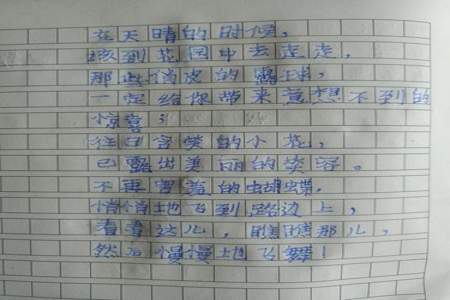 在天晴的时候,
该到花园中去走走,
那些俏皮的露珠,
一定给你带来意想不到的
惊喜;
往日含笑的小花,
已露出美丽的笑容。
不再害羞的蝴蝶,
悄悄地飞到路边上,
看看这儿,瞧瞧那儿,
然后慢慢地飞舞!